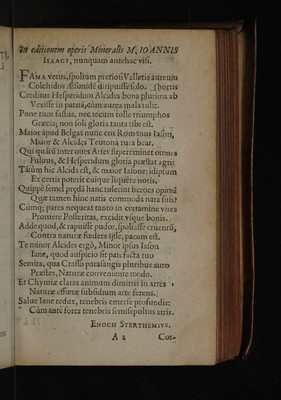 In editionem operis Mineralis M. IOANNIS
ISAACI, nunquam antehac visi.
FAMA vetus, spolium pretiosi Velleris aureum
Colchidos Æsonidē diripuisse solo.
(hortis
Creditur Hesperidum Alcides bona plurima ab
Vexisse in patriā, cùm aurea mala tulit.
Pone tuos fastus, nec tecum tolle triumphos
Græcia; non soli gloria tanta tibi est.
Maior apud Belgas nunc erit Romanus Iason,
Maior & Alcides Teutona rura bear.
Qui quātū inter omnes Aries supereminet omnes
Fulvus, & Hesperidum gloria præstat agri:
Tātùm hic Alcida est, & maior Iasone: idiptum
Ex certis poterit cuique liquére notis.
Quippè semel prædā hanc tulerint heroes opimā
Quæ tamen hinc natis commoda nata suis?
Cúmq; pares nequeat tanto in certamine vires
Promere Posteritas, excidit vsque bonis.
Adde quod, & rapuisse pudor, spolisse cruentū,
Contra naturæ fœdera ipse, patom est.
Te minor Alcides ergò, Minor ipsus Iason
Iane, quod auspicio sit patefacta tuo
Semita, qua Crasso parasangis pluribus auro
Præstes, Naturæ conveniente modo.
Et Chymiæ claras animum dimittis in artes
Naturæ effœtæ subsidium arte ferens.
Salue Iane redux, tenebris emerse profundis:
Cùm ante fores tenebris semisepultus atris.
ENOCH STERTHEMIVS.
A 2
Cor-